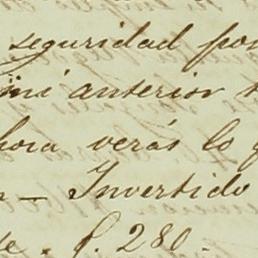 seguridad por
mi anterior
hora verás lo
— Invertido
. f. 280.